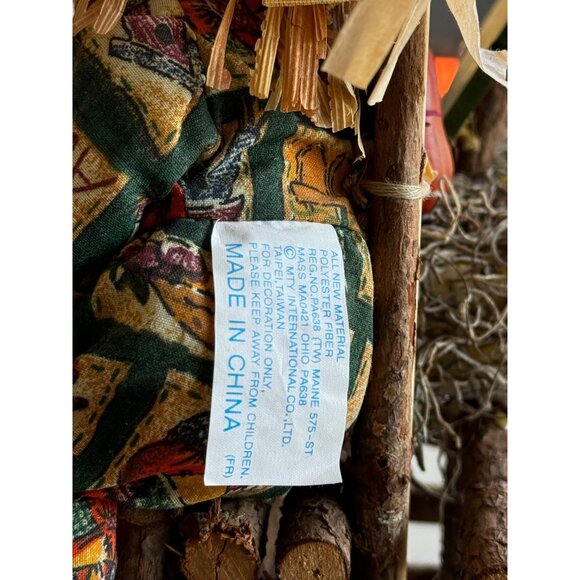 ALL NEW MATERIAL
POLYESTER FIBER
REG.NO.PA638 (TW) MAINE 575-ST
MASS MA0421 OHIO PA638
© MTY INTERNATIONAL CO.,LTD.
TAIPEI,TAIWAN
FOR DECORATION ONLY,
PLEASE KEEP AWAY FROM CHILDREN.
MADE IN CHINA (FR)